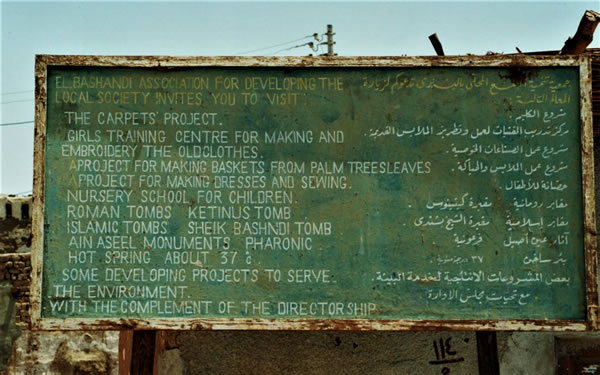 EL BASHANDI ASSOCIATION FOR DEVELOPING THE
LOCAL SOCIETY INVITES YOU TO VISIT:
THE CARPETS' PROJECT.
GIRLS TRAINING CENTRE FOR MAKING AND
EMBROIDERY THE OLDCLOTHES.
APROJECT FOR MAKING BASKETS FROM PALM TREESLEAVES
APROJECT FOR MAKING DRESSES AND SEWING.
NURSERY SCHOOL FOR CHILDREN.
ROMAN TOMBS KETINUS TOMB
ISLAMIC TOMBS SHEIK BASHNDI TOMB
AIN ASEEL MONUMENTS PHARONIC
HOT SPRING ABOUT 37 c
SOME DEVELOPING PROJECTS TO SERVE.
THE ENVIRONMENT.
WITH THE COMPLEMENT OF THE DIRECTORSHIP
جمعية تنمية المجتمع المحلى بالبشندى تدعوكم لزيارة
مشروع الكليم
مركز تدريب الفتيات لعمل وتطريز الملابس القديمة
مشروع عمل الصناعات الخوصية
مشروع عمل الملابس والحياكة
حضانة للأطفال
مقابر رومانية مقبرة كيتينوس
مقابر إسلامية مقبرة الشيخ بشندى
آثار عين أصيل فرعونية
بئر ساخن ٣٧ درجة مئوية
بعض المشروعات الانتاجية لخدمة البيئة
مع تحيات مجلس الادارة
١١٤
٥